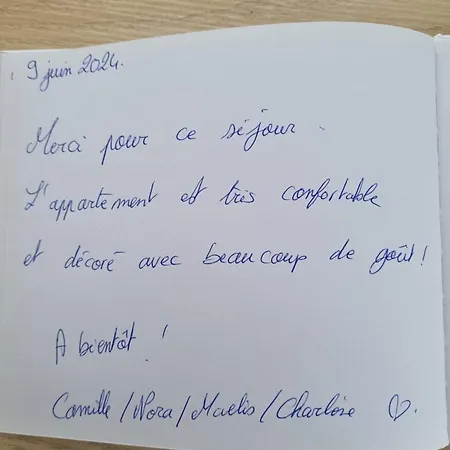 9 juin 2024.
Merci pour ce séjour.
L'appartement est très confortable
et décoré avec beaucoup de goût !
A bientôt !
Camille / Nora / Maelis / Charlène ♡.